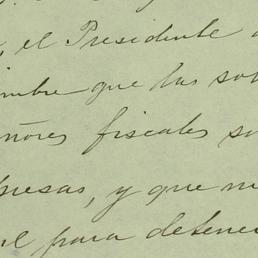 , el Presidente
mbre que las so
ñores fiscales so
presas, y que n
el para detene